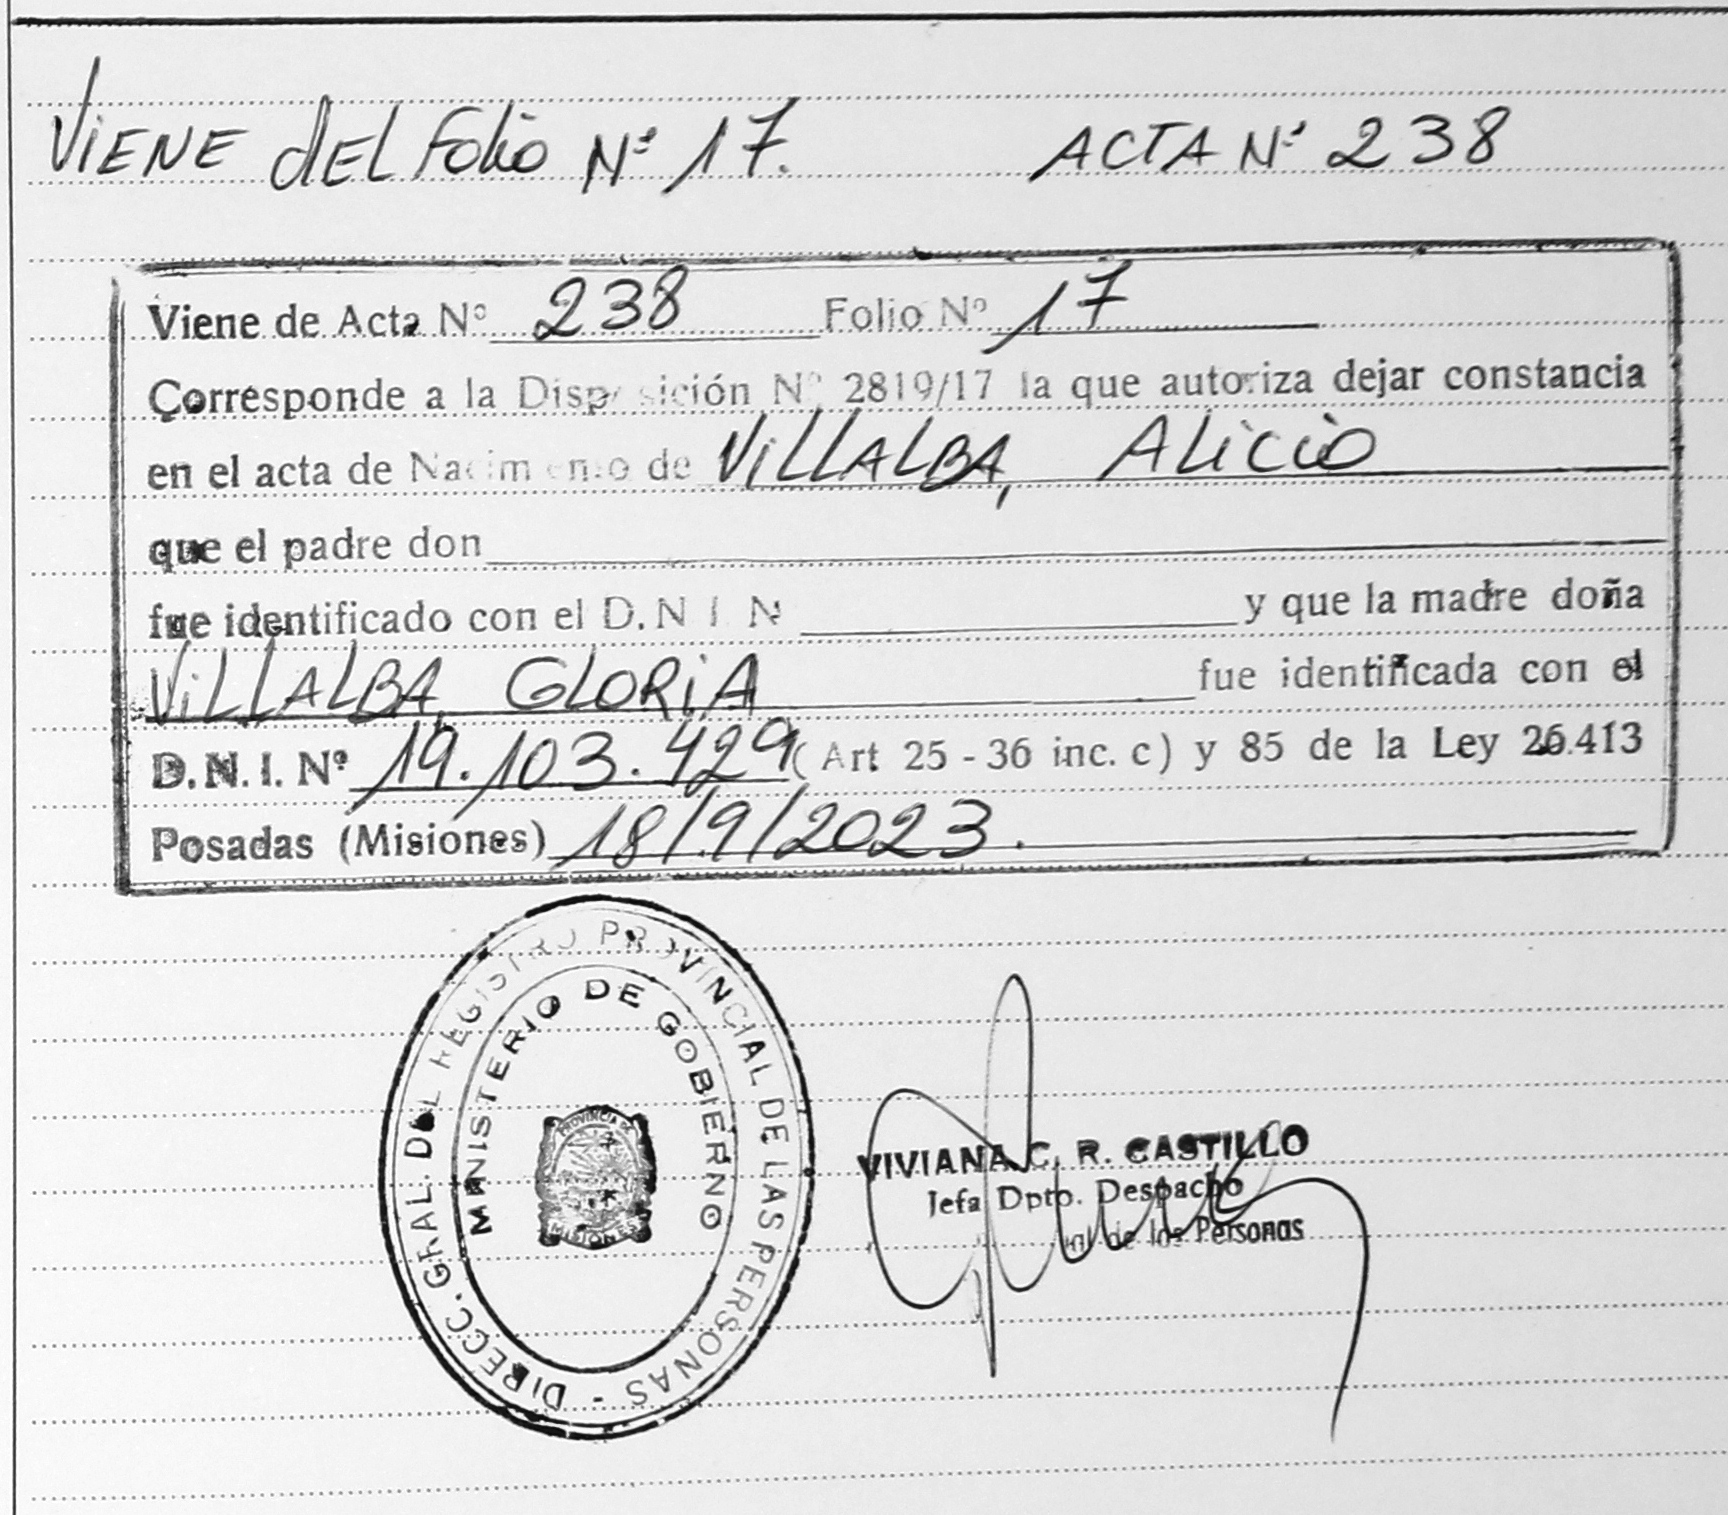 ViENE dEL Folio Nº 17. ACTA Nº 238
Viene de Acta Nº 238 Folio Nº 17
Corresponde a la Disposición Nº 2819/17 la que autoriza dejar constancia
en el acta de Nacimiento de ViLLALBA, ALicio
que el padre don
fue identificado con el D.N I N y que la madre doña
ViLLALBA, GLORiA fue identificada con el
D.N.I. Nº 19.103.429 (Art 25 - 36 inc. c) y 85 de la Ley 26.413
Posadas (Misiones) 18/9/2023.
DIRECC. GRAL. DEL REGISTRO PROVINCIAL DE LAS PERSONAS -
MINISTERIO DE GOBIERNO
PROVINCIA DE
MISIONES
VIVIANA C. R. CASTILLO
Jefa Dpto. Despacho
de las Personas